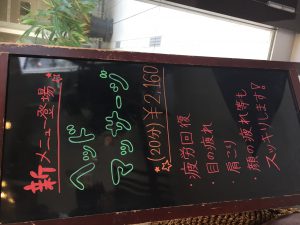 新メニュー登場
ヘッド
マッサージ
(20分)￥2,160
・疲労回復
・目の疲れ
・肩こり
・顔の疲れ等も
スッキリします!